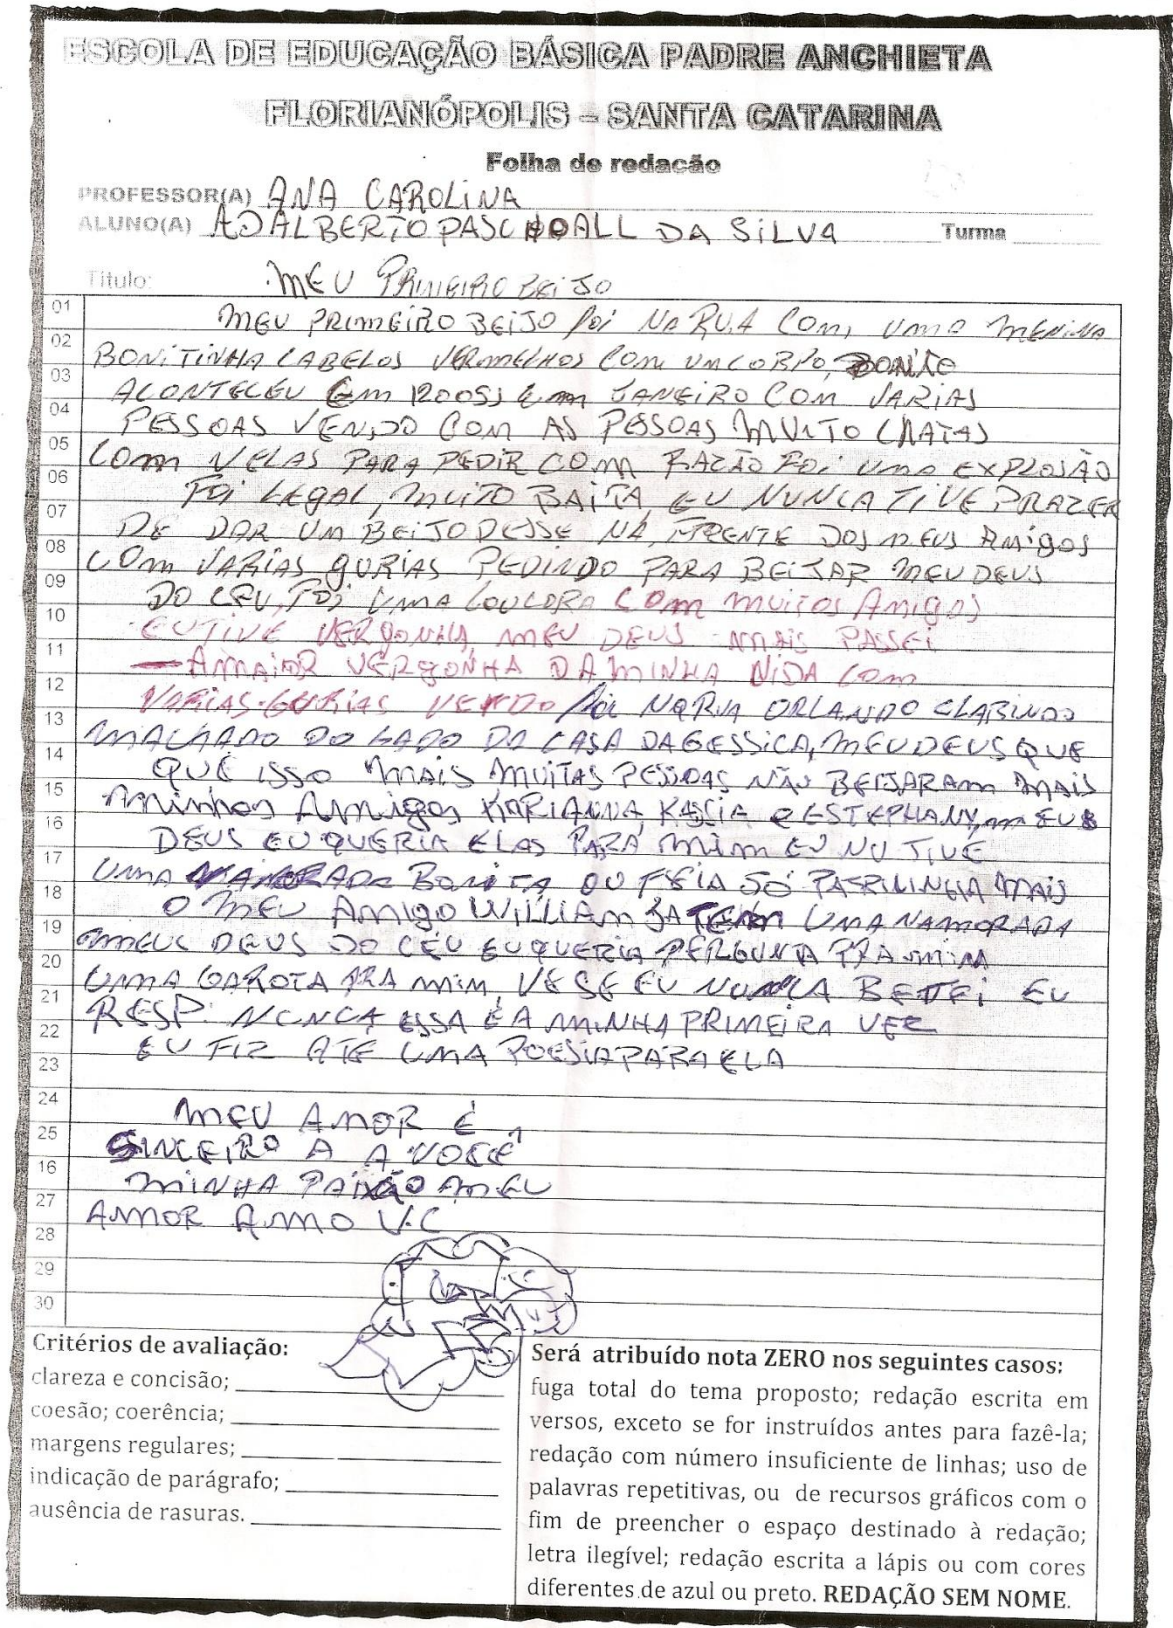 ESCOLA DE EDUCAÇÃO BÁSICA PADRE ANCHIETA
FLORIANÓPOLIS – SANTA CATARINA
Folha de redação
PROFESSOR(A) ANA CAROLINA
ALUNO(A) ADALBERTO PASCHOALL DA SILVA Turma
Título: MEU PRIMEIRO BEIJO
01 MEU PRIMEIRO BEIJO foi NA RUA COM, UMA MENINA
02 BONITINHA CABELOS VERMELHOS COM UM CORPO, BONITO
03 ACONTECEU Em 2005 Em JANEIRO COM VARIAS
04 PESSOAS VENDO COM AS PESSOAS MUITO CHATAS
05 COM VELAS PARA PEDIR COM RAZÃO FOI UMA EXPLOSÃO
06 FOI LEGAL, MUITO BAITA, EU NUNCA TIVE PRAZER
07 DE DAR UM BEIJO DESSE NA, FRENTE DOS MEUS AMigOS
08 COM VARIAS GURIAS PEDINDO PARA BEIJAR MEU DEUS
09 DO CEU, FOI UMA LOUCORA COM muitos Amigos
10 EU TIVE VERGONHA, MEU DEUS MAIS PASSEI
11 A MAIOR VERGONHA DA MINHA VIDA COM
12 VARIAS GURIAS VENDO foi NA RUA ORLANDO CLARINDO
13 MACHADO DO LADO DA CASA DA GESSICA, MEU DEUS QUE
14 QUE ISSO MAIS MUITAS PESSOAS NÃO BEIJARAM MAIS
15 Aminhas Amigas KARIANNA, KASIA e ESTEPHANY, mEUS
16 DEUS EU QUERIA ELAS PARA MIM EU NU TIVE
17 UMA NAMORADA BONITA OU FEIA SÓ PATRILINHA MAIS
18 O MEU AMIGO WILLIAM JA TEM UMA NAMORADA
19 MEUS DEUS DO CÉU EU QUERIA PERGUNTA PRA MIM
20 UMA GAROTA PRA MIM, VE SE EU NUNCA BEIJEI EU
21 RESP. NUNCA, ESSA É A MINHA PRIMEIRA VEZ
22 EU FIZ ATE UMA POESIA PARA ELA
23
24 MEU AMOR É
25 SINCEIRO A A VOCÊ
16 MINHA PAIXÃO MEU
27 AMOR AMO V.C
28
29
30
Critérios de avaliação:
clareza e concisão;
coesão; coerência;
margens regulares;
indicação de parágrafo;
ausência de rasuras.
Será atribuído nota ZERO nos seguintes casos:
fuga total do tema proposto; redação escrita em
versos, exceto se for instruídos antes para fazê-la;
redação com número insuficiente de linhas; uso de
palavras repetitivas, ou de recursos gráficos com o
fim de preencher o espaço destinado à redação;
letra ilegível; redação escrita a lápis ou com cores
diferentes de azul ou preto. REDAÇÃO SEM NOME.